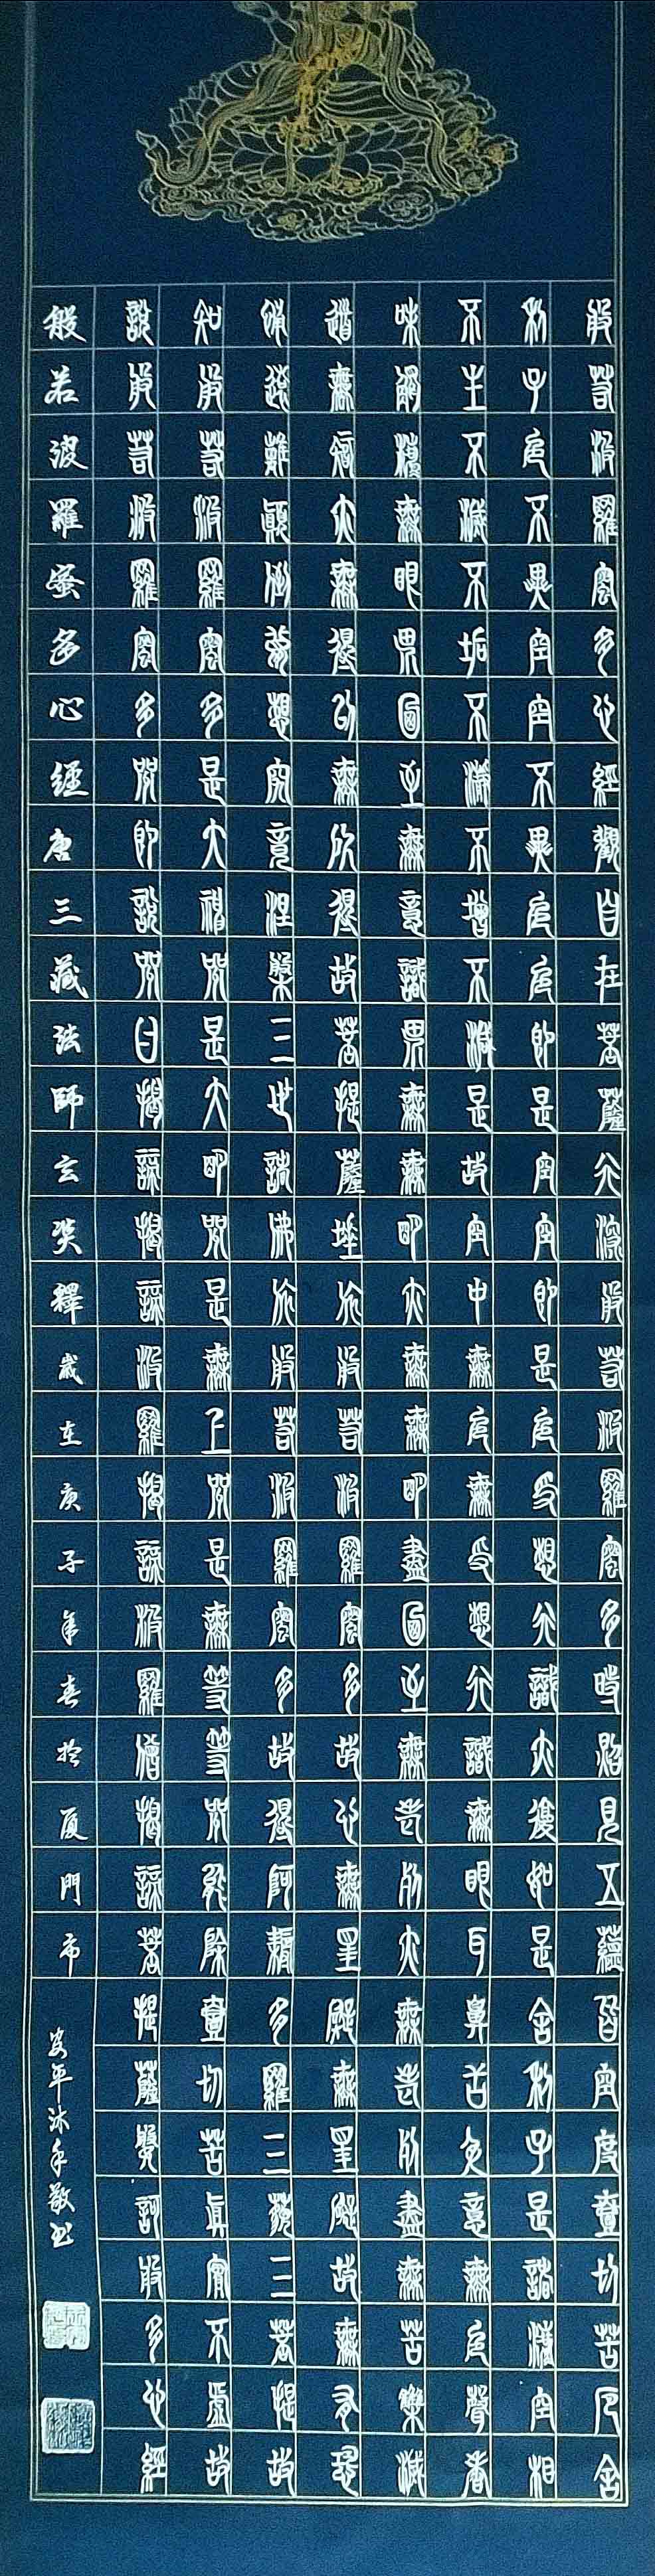 般若波羅蜜多心經觀自在菩薩行深般若波羅蜜多時照見五蘊皆空度壹切苦厄舍
利子色不異空空不異色色即是空空即是色受想行識亦復如是舍利子是諸法空相
不生不滅不垢不淨不增不減是故空中無色無受想行識無眼耳鼻舌身意無色聲香
味觸法無眼界乃至無意識界無無明亦無無明盡乃至無老死亦無老死盡無苦集滅
道無智亦無得以無所得故菩提薩埵依般若波羅蜜多故心無罣礙無罣礙故無有恐
怖遠離顛倒夢想究竟涅槃三世諸佛依般若波羅蜜多故得阿耨多羅三藐三菩提故
知般若波羅蜜多是大神咒是大明咒是無上咒是無等等咒能除壹切苦真實不虛故
說般若波羅蜜多咒即說咒曰揭諦揭諦波羅揭諦波羅僧揭諦菩提薩婆訶般多心經
般若波羅蜜多心經唐三藏法師玄奘譯歲在庚子年春於厦門市安平沐手敬書